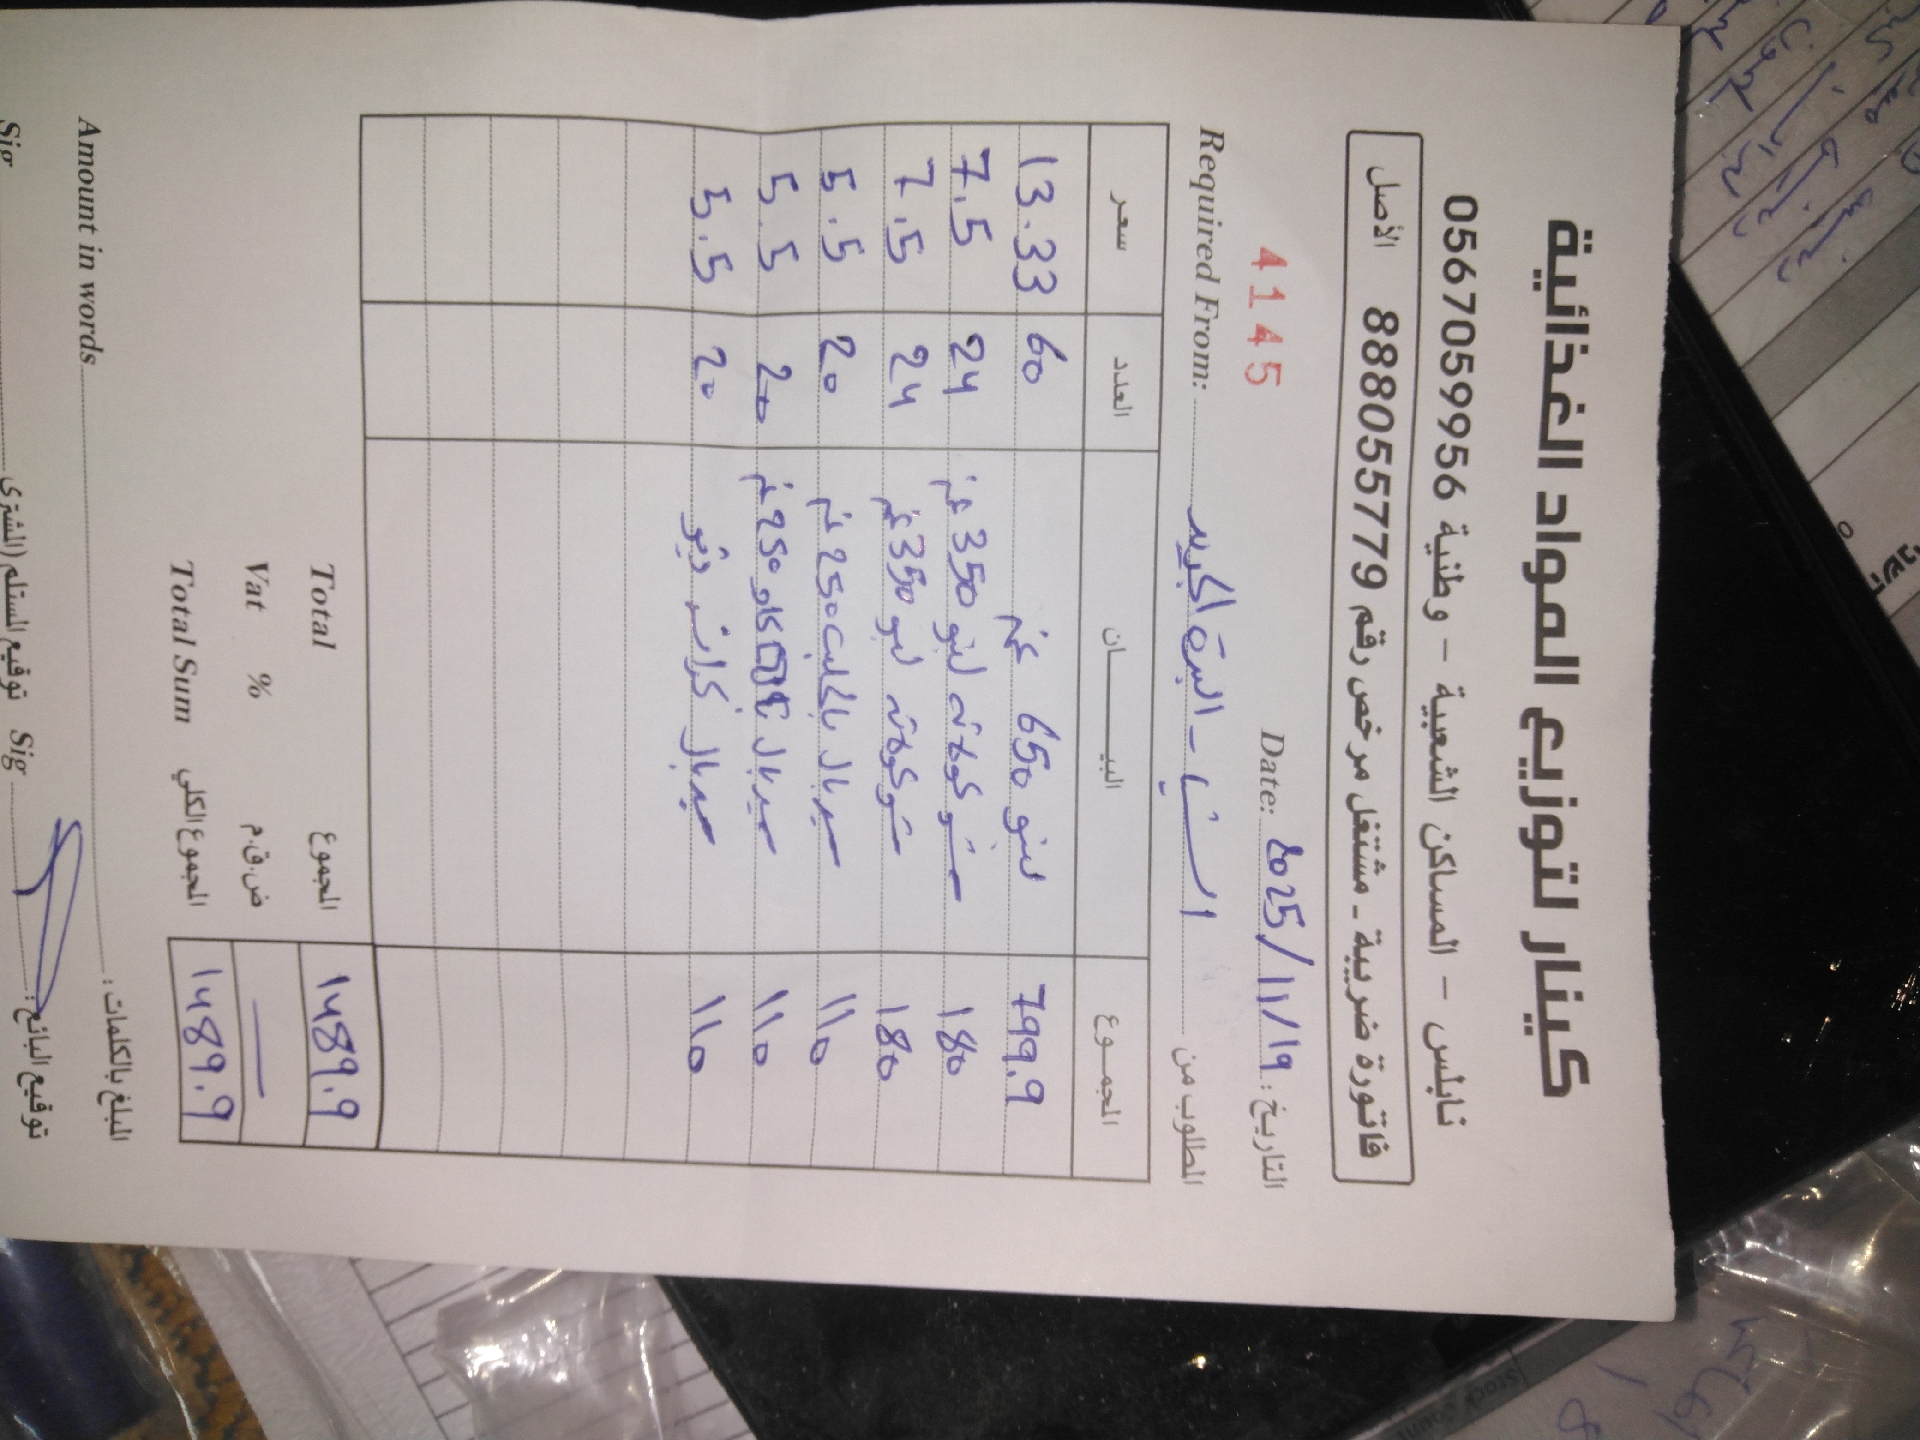 كينار لتوزيع المواد الغذائية
نابلس - المساكن الشعبية - وطنية 0567059956
فاتورة ضريبية - مشتغل مرخص رقم 888055779 الأصل
4145 Date: 2025/11/19 التاريخ:
Required From: المطلوب من
سعر العدد البيــــان المجمــوع
13.33 60 لبنو 650 غم 799.9
7.5 24 شوكولاته لبنو 350 غم 180
7.5 24 شوكولاته لبنو 350 غم 180
5.5 20 سيربال 250 غم 110
5.5 20 سيربال كاكاو 250 غم 110
5.5 20 سيربال كرات 110
Total المجموع 1489.9
Vat % ض.ق.م
Total Sum المجموع الكلي 1489.9
Amount in words المبلغ بالكلمات:
Sig توقيع المستلم (المشتري Sig توقيع البائع: